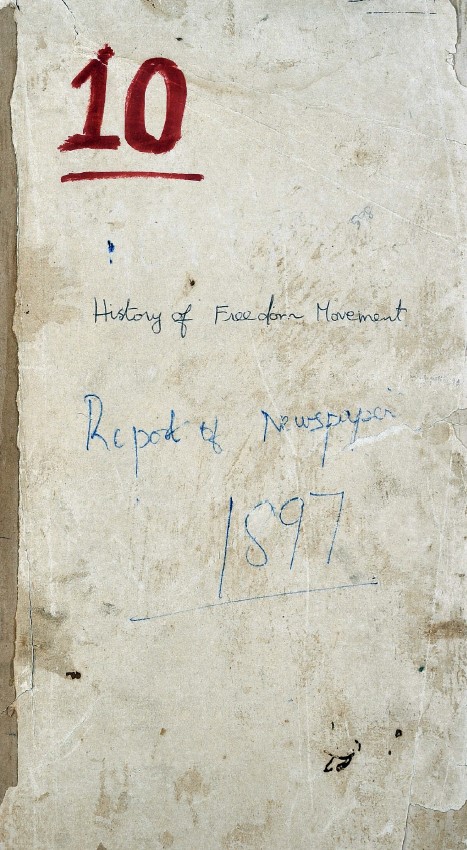 10
History of Freedom Movement
Report of Newspaper
1897